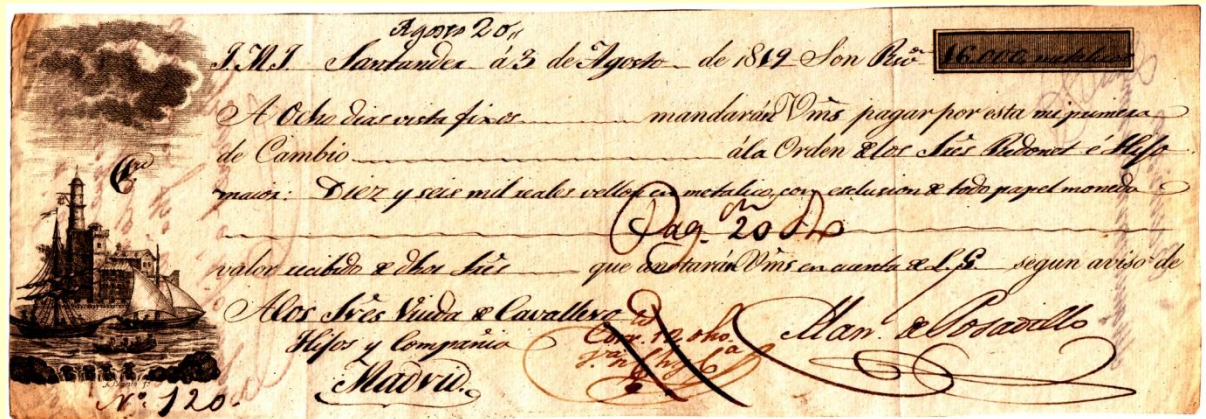 Agosto 20,,
Santander á 3 de Agosto de 1819 Son Rvo.n 16.000 metalico
A Ocho dias vista fixos mandarán Vms pagar por esta mi primera
de Cambio á la Orden de los Srēs Redonet é Hijo
maior: Diez y seis mil reales vellon en metalico, con esclusion de todo papel moneda
Pag. 20
valor recibido de dhos Srēs que anotarán Vms en cuenta de L. G. segun aviso de
A los Srēs Viuda de Cavallero
Hijos y Compania
Man. de Posadillo
Madrid.
Nº. 120.